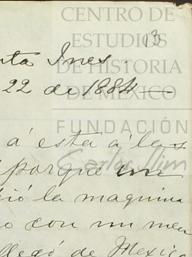 CENTRO DE
ESTUDIOS
DE HISTORIA
DE MÉXICO
FUNDACIÓN
Carlos Slim
13
ta Ines.
22 de 1884
á esta á las
porque un
dió la maquina
o con un me
llegó de Mexico